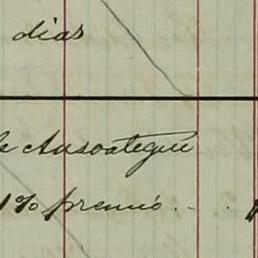 dias
de Ansoategui
1% premió